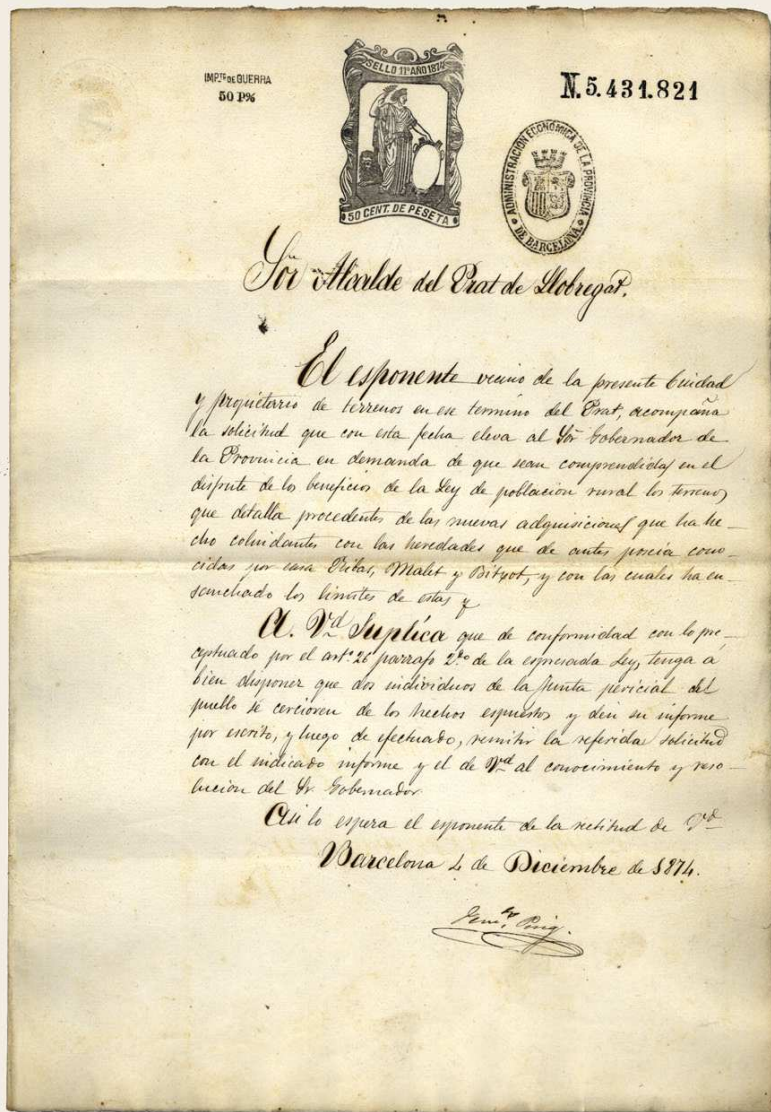 IMP.TE DE GUERRA
50 P%
SELLO 11º AÑO 1874
50 CENT. DE PESETA
N. 5.431.821
ADMINISTRACION ECONOMICA DE LA PROVINCIA
DE BARCELONA
Sor Alcalde del Prat de Llobregat.
El esponente vecino de la presente Ciudad
y propietario de terrenos en ese termino del Prat, acompaña
la solicitud que con esta fecha eleva al Sor Gobernador de
la Provincia en demanda de que sean comprendidas en el
disfrute de los beneficios de la Ley de poblacion rural los terrenos
que detalla procedentes de las nuevas adquisiciones que ha he-
cho colindantes con las heredades que de antes poseia cono-
cidas por casa Ribas, Malet y Bitxot, y con las cuales ha en-
sanchado los limites de estas y
A. Vd Suplíca que de conformidad con lo pre-
ceptuado por el artº 26 parrafo 2do de la espresada Ley, tenga á
bien disponer que dos individuos de la Junta pericial del
pueblo se cercioren de los hechos espuestos y dén su informe
por escrito, y luego de efectuado, remitir la referida solicitud
con el indicado informe y el de Vd al conocimiento y reso-
lucion del Sr. Gobernador.
Asi lo espera el esponente de la rectitud de Vd
Barcelona 4 de Diciembre de 1874.
Puig.